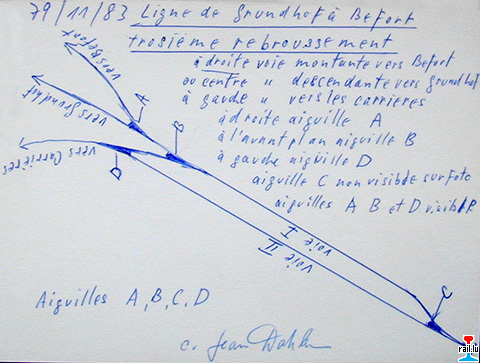 79/11/83 Ligne de Grundhof à Befort
trosième rebroussement
à droite voie montante vers Befort
au centre " descendante vers Grundhof
à gauche " vers les carrières
à droite aiguille A
à l'avant plan aiguille B
à gauche aiguille D
aiguille C non visible sur foto
aiguilles A B et D visibles
vers Befort
vers Grundhof
vers Carrières
A
B
D
voie I
voie II
C
Aiguilles A, B, C, D
c. Jean Dahlem
rail.lu